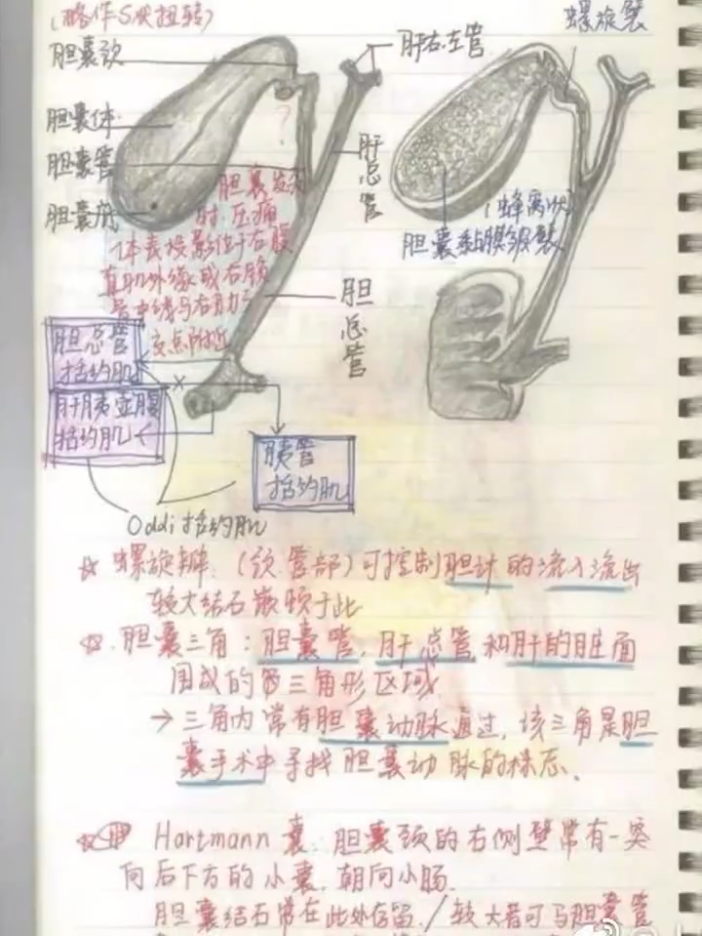 (略作S状扭转)
胆囊颈
胆囊体
胆囊管
胆囊底
肝右.左管
肝总管
胆总管
螺旋襞
(蜂窝状)
胆囊黏膜皱襞
?
胆囊发炎
时.压痛
体表投影位于右腹
直肌外缘或右锁
骨中线与右肋弓
交点附近
胆总管
括约肌
肝胰壶腹
括约肌
胰管
括约肌
Oddi括约肌
☆ 螺旋瓣.(颈.管部)可控制胆汁的流入流出
较大结石嵌顿于此
☆.胆囊三角:胆囊管.肝总管和肝的脏面
围成的 三角形区域
→ 三角内常有胆囊动脉通过,该三角是胆
囊手术中寻找胆囊动脉的标志.
Hartmann囊:胆囊颈的右侧壁常有一突
向后下方的小囊.朝向小肠.
胆囊结石常在此处存留./较大者可 胆囊管